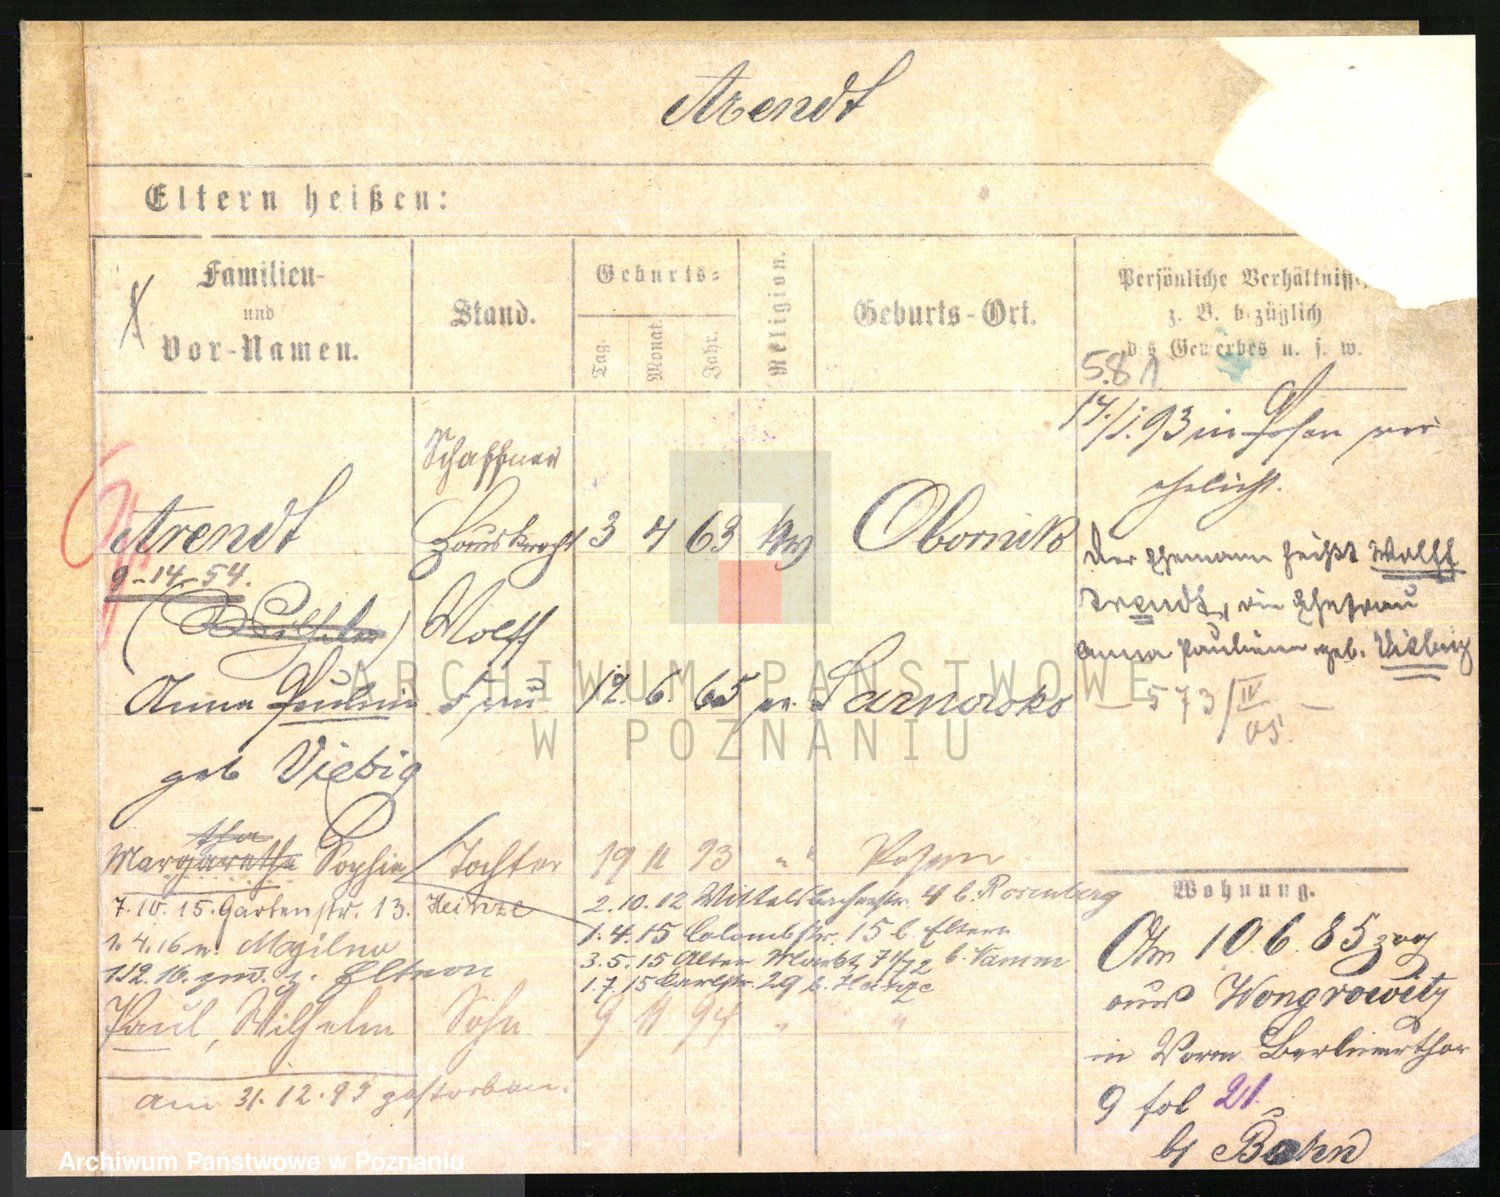 Arendt
Eltern heißen:
Familien-
und
Vor-Namen.
Stand.
Geburts-
Tag.
Monat.
Jahr.
Religion.
Geburts-Ort.
Persönliche Verhältniss
z. B. bezüglich
des Gewerbes u. s. w.
5.81
17./1.93 in Posen ver
ehelicht.
Schaffner
Arendt Hausknecht 3 4 63 Obornik
9-14-54.
(Wilhelm) Wolff
Der Ehemann heißt Wolff
Arendt, die Ehefrau
Anna Pauline geb. Viebig
Anna Paulin Frau 12. 6. 65 Sarnowko
— 573/IV 05. —
geb Viebig
tha
Margarethe Sophie Tochter 19 11 93 " " Posen
7.10.15. Gartenstr. 13. Heinze
2.10.12 Wittelsbacherstr. 4 b. Rosenberg
1.4.16 n. Mogilno
1.4.15 Colombstr. 15 b. Eltern
1.12.16. zur. z. Eltern
3.5.15 Alter Markt 71/72 b. Tamm
1.7.15 Carlstr. 29 b. Heinze
Paul, Wilhelm Sohn 9 11 94 " "
am 31.12.95 gestorben.
Wohnung.
Am 10.6.85 zog
aus Wongrowitz
in Vorm Berlinerthor
9 fol 21
bei Bohn
ARCHIWUM PAŃSTWOWE
W POZNANIU
Archiwum Państwowe w Poznaniu